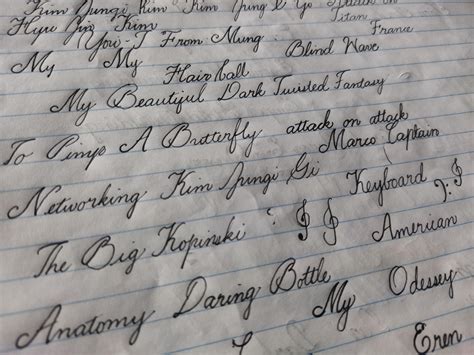 Kim Jungi Kim Kim Jung I Go Attack on
Hyu Jin Kim Titan
(You:) From Mung France
My My Blind Wave
Hairball
My Beautiful Dark Twisted Fantasy
To Pimp A Butterfly attack on attack
Marco Captain
Networking Kim Jungi Gi Keyboard
The Big Kopinski ? American
Anatomy Daring Bottle
My Odessey
Eren